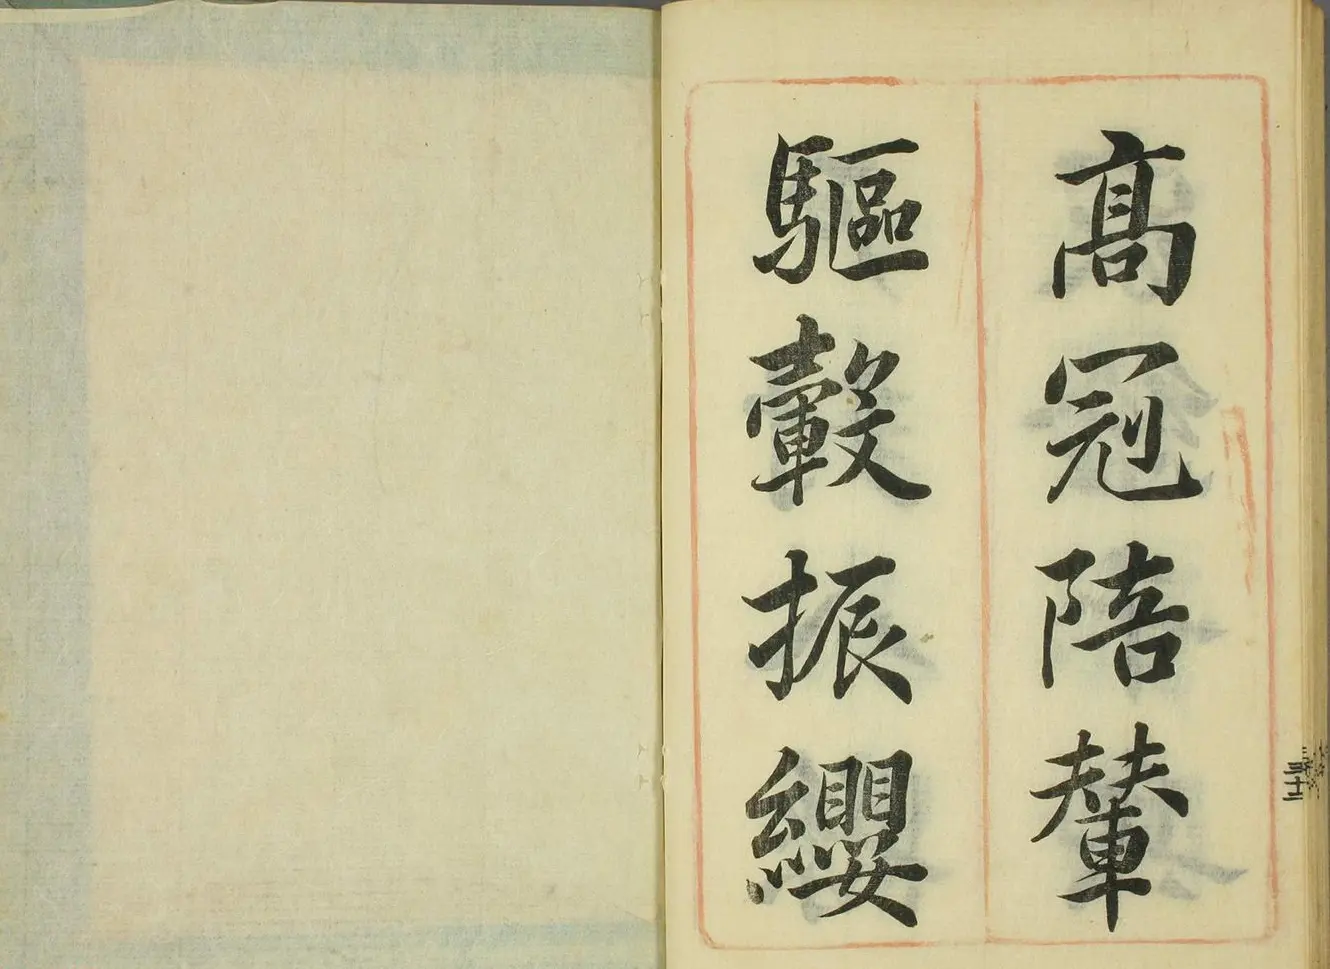 髙冠陪輦
驅轂振纓
三十二